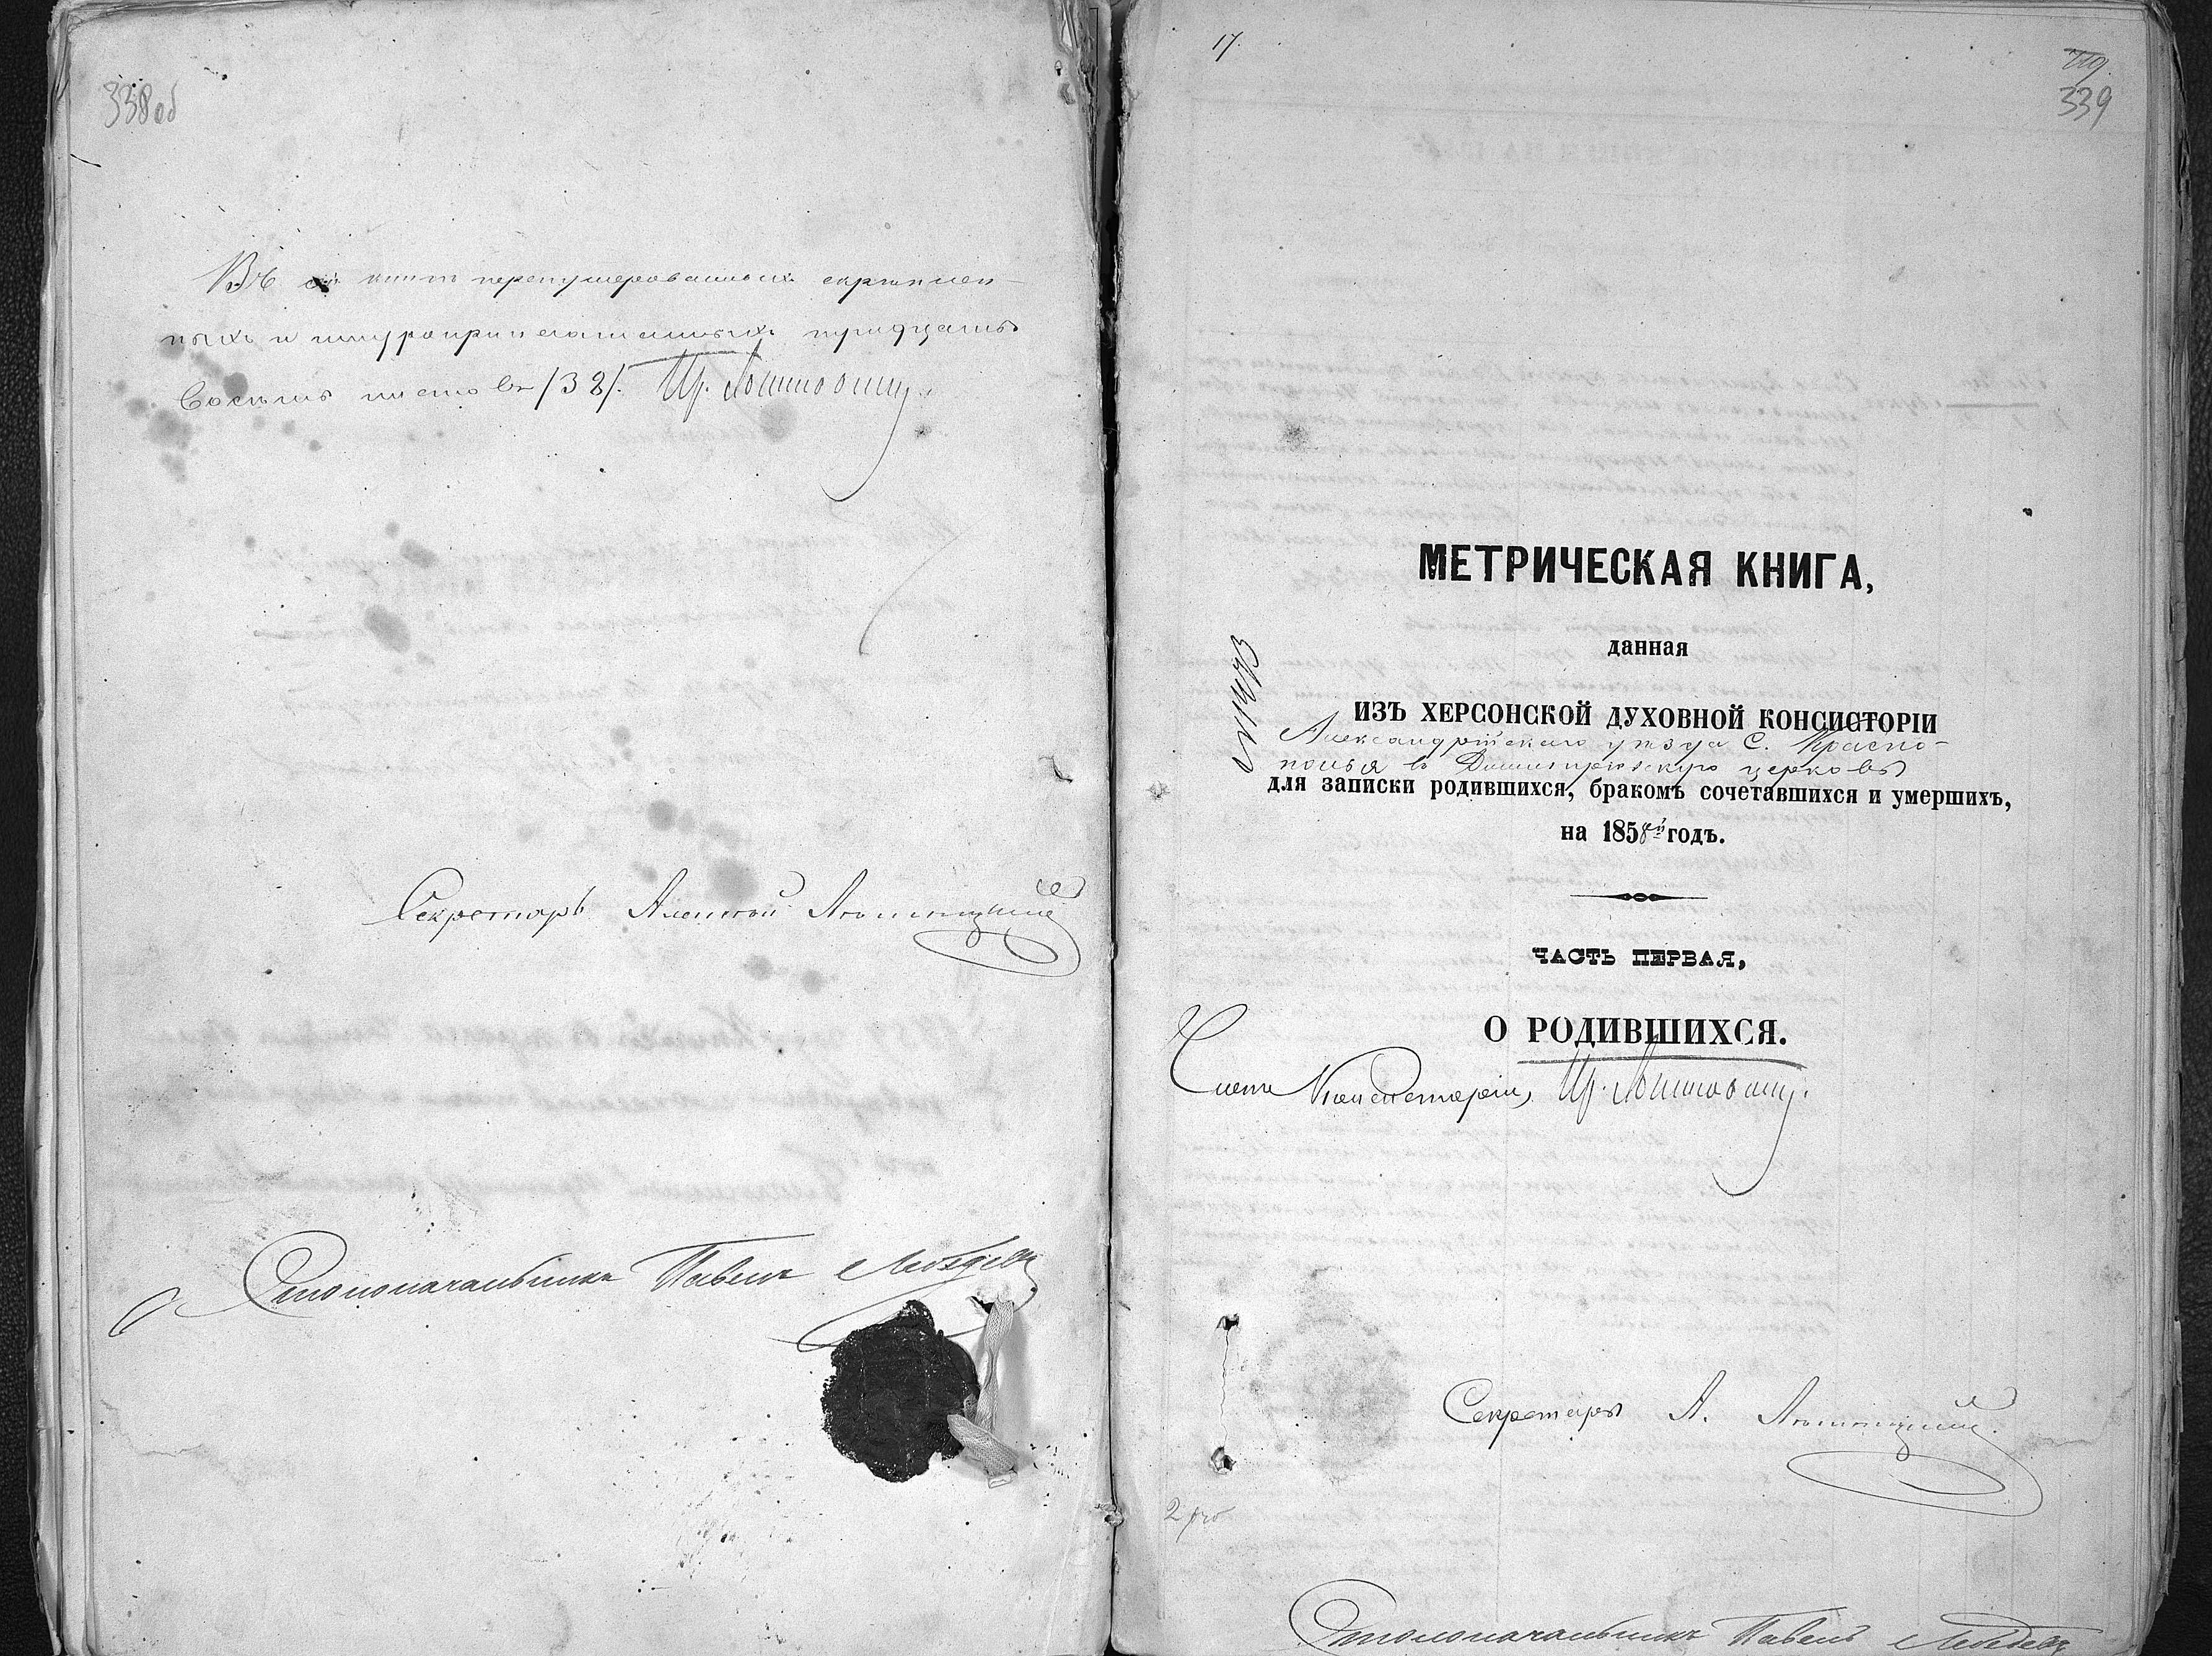 338 об
Въ сей книгѣ перенумерованныхъ скрѣплен-
ныхъ и шнуроприпечатанныхъ тридцать
восемь листовъ /38/.
Секретарь Алексѣй
Столоначальникъ Павелъ Лебедевъ
17.
339
МЕТРИЧЕСКАЯ КНИГА,
данная
ИЗЪ ХЕРСОНСКОЙ ДУХОВНОЙ КОНСИСТОРІИ
Александрійскаго уѣзда С. Краспо-
полья въ Димитріевскую церковь
для записки родившихся, бракомъ сочетавшихся и умершихъ,
на 1858й годъ.
ЧАСТЬ ПЕРВАЯ,
О РОДИВШИХСЯ.
Членъ Консисторіи,
Секретарь А.
Столоначальникъ Павелъ Лебедевъ